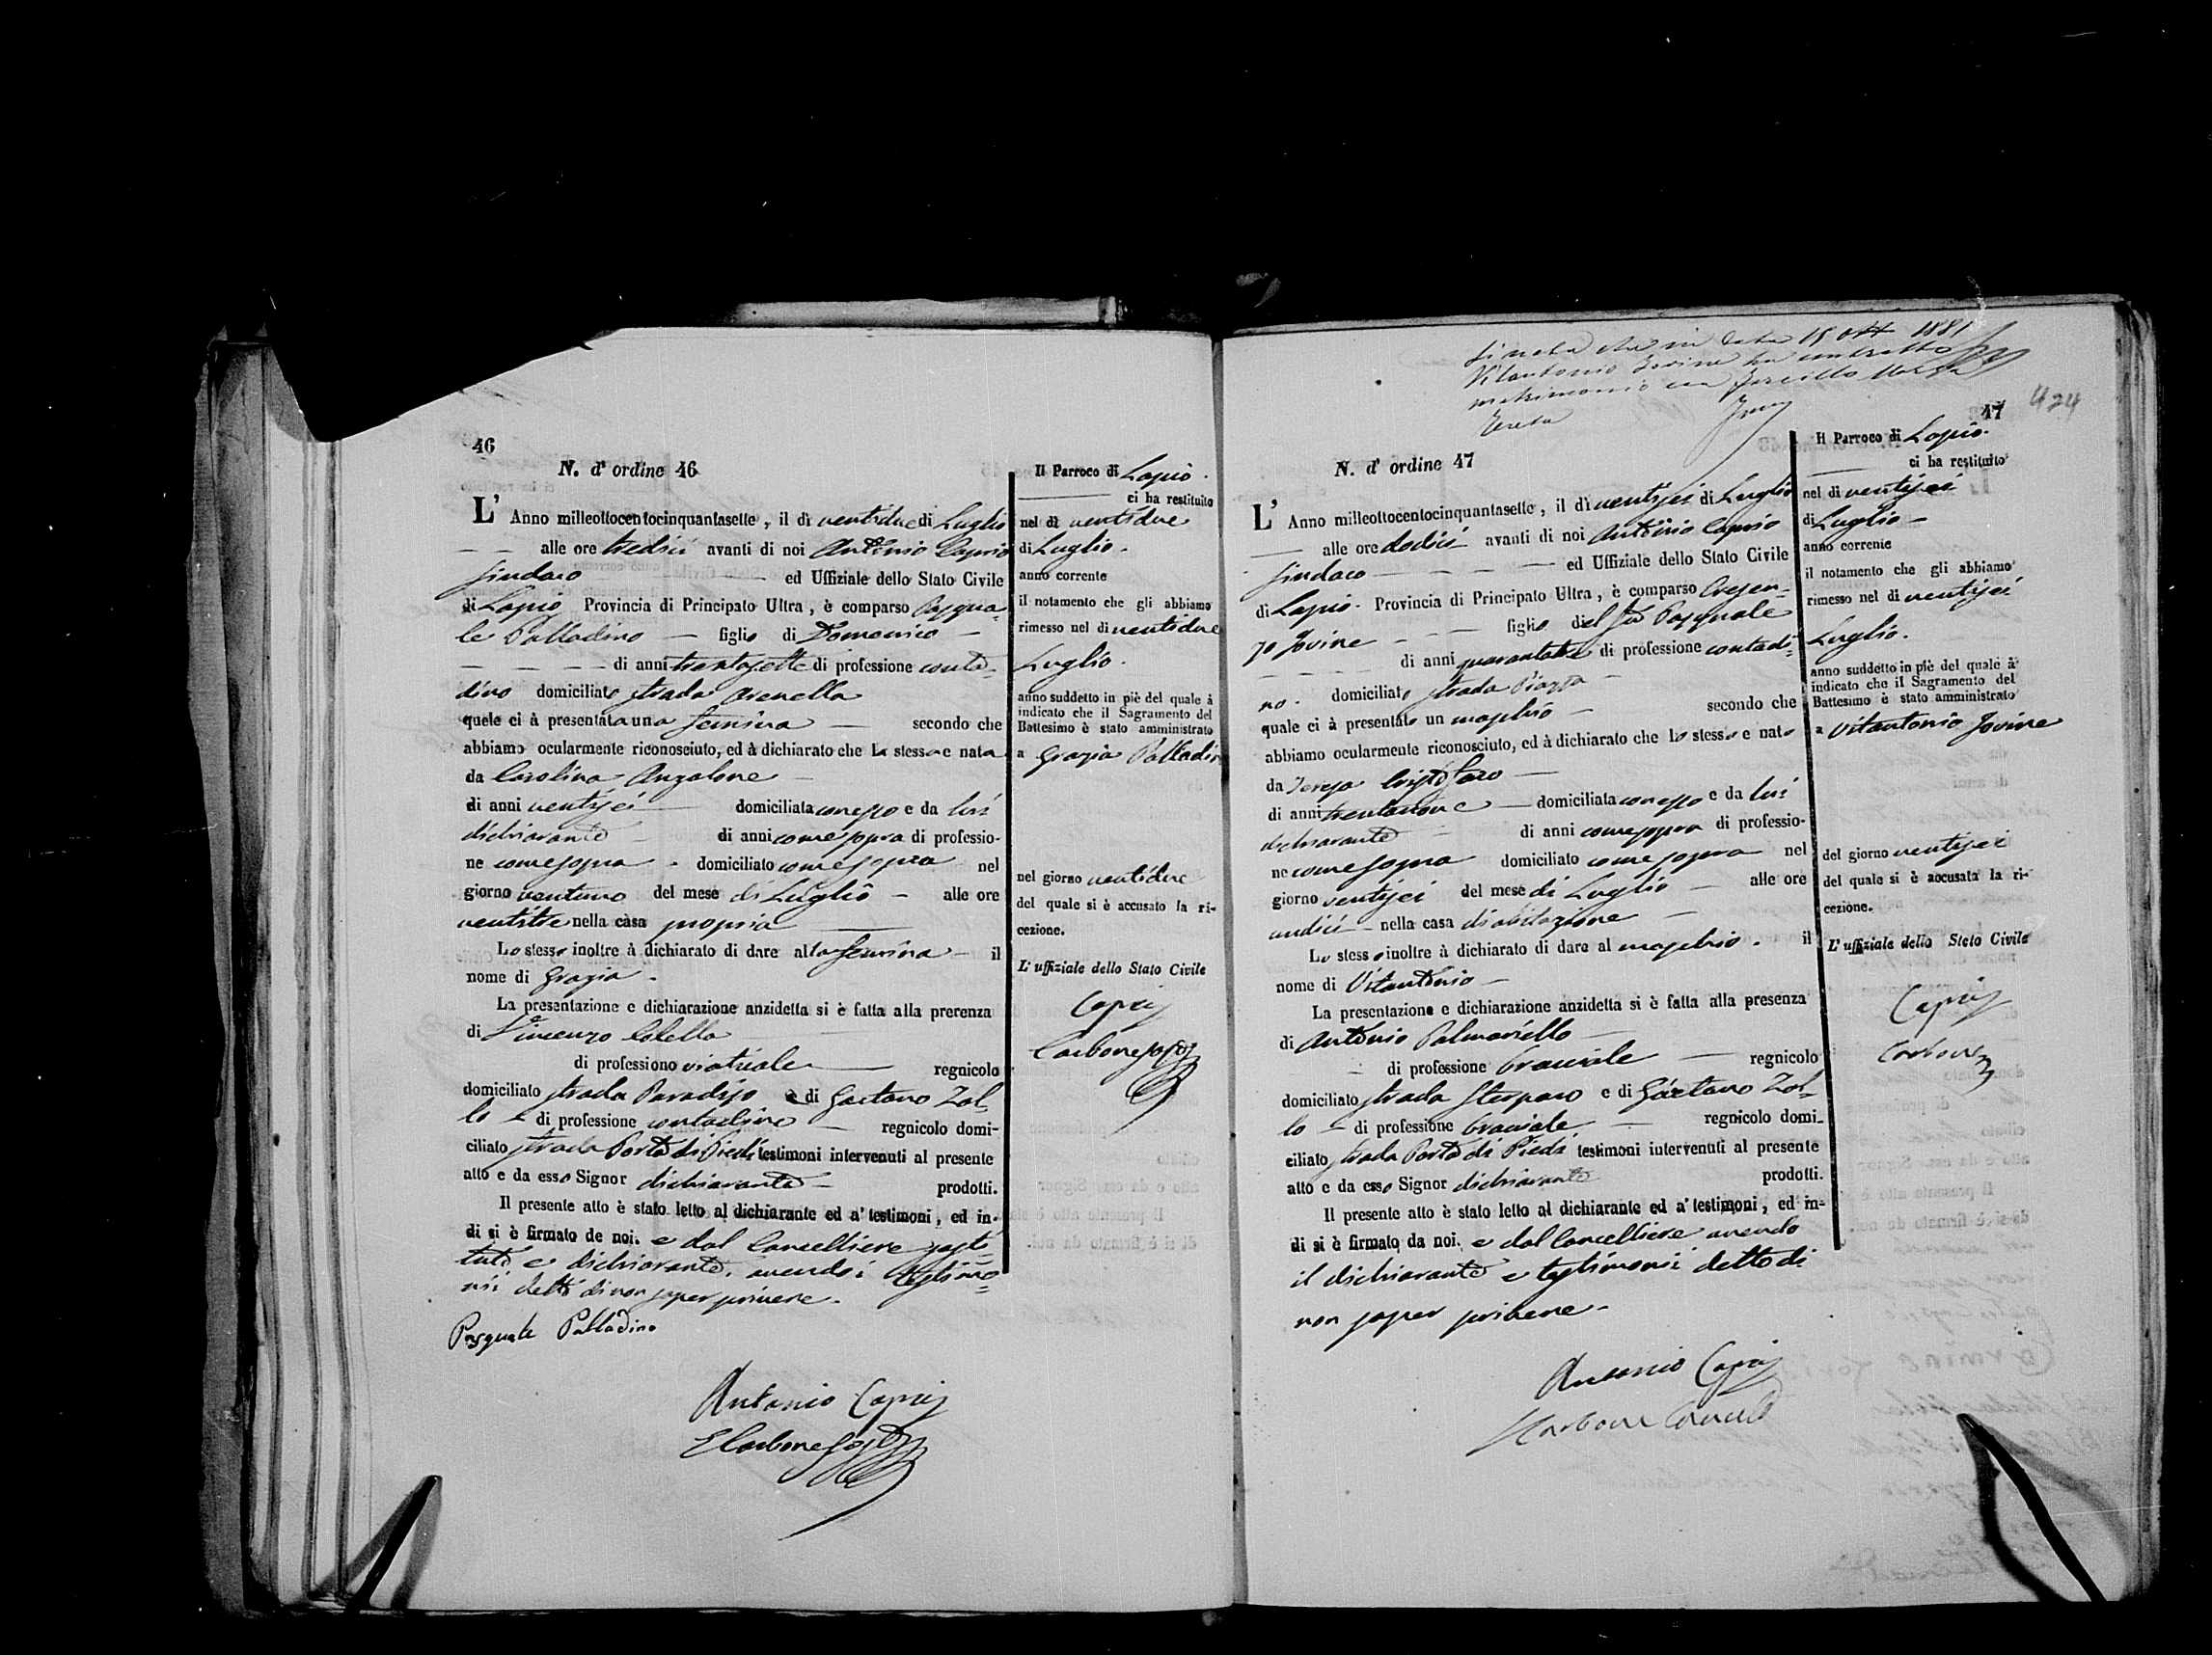 46
N. d' ordine 46
L' Anno milleottocentocinquantasette, il dì ventidue di Luglio
alle ore tredici avanti di noi Antonio Caprio
Sindaco ed Uffiziale dello Stato Civile
di Lapio Provincia di Principato Ultra, è comparso Pasqua-
le Palladino figlio di Domenico
di anni trentasette di professione conta-
dino domiciliato strada Arenella
quele ci à presentata una femina secondo che
abbiamo ocularmente riconosciuto, ed à dichiarato che la stessa e nata
da Carolina Anzalone
di anni ventisei domiciliata con esso e da lui
dichiarante di anni come sopra di professio-
ne come sopra domiciliato come sopra nel
giorno ventuno del mese di Luglio alle ore
ventitre nella casa propria
Lo stesso inoltre à dichiarato di dare alla femina il
nome di Grazia
La presentazione e dichiarazione anzidetta si è fatta alla prerenza
di Vincenzo Colella
di professiono viaticale regnicolo
domiciliato strada Paradiso e di Gaetano Zol-
lo di professione contadino regnicolo domi-
ciliato strada Porta di Piedi testimoni intervenuti al presente
atto e da esso Signor dichiarante prodotti.
Il presente atto è stato letto al dichiarante ed a' testimoni, ed in-
di si è firmato de noi. e dal Cancelliere sosti-
tuto e dichiarante. avendo i testimo-
nii detto di non saper scrivere.
Pasquale Palladino
Antonio Caprio
Carbone
Il Parroco di Lapio
ci ha restituito
nel dì ventidue
di Luglio.
anno corrente
il notamento che gli abbiamo
rimesso nel di ventidue
Luglio.
anno suddetto in piè del quale à
indicato che il Sagramento del
Battesimo è stato amministrato
a Grazia Palladin
nel giorno ventidue
del quale si è accusato la ri-
cezione.
L' uffiziale dello Stato Civile
Caprio
Carbone
Si nota che in data 15 ott 1881
Vitantonio Jovine ha contratto
matrimonio con
47
424
N. d' ordine 47
L' Anno milleottocentocinquantasette, il dì ventisei di Luglio
alle ore dodici avanti di noi Antonio Caprio
Sindaco ed Uffiziale dello Stato Civile
di Lapio. Provincia di Principato Ultra, è comparso Cresen-
zo Jovine figlio del fu Pasquale
di anni quarantatre di professione contadi-
no. domiciliato strada Piazza
quale ci à presentato un maschio secondo che
abbiamo ocularmente riconosciuto, ed à dichiarato che lo stesso e nato
da Teresa Cristofaro
di anni trentanove domiciliata con esso e da lui
dichiarante di anni come sopra di professio-
ne come sopra domiciliato come sopra nel
giorno ventisei del mese di Luglio alle ore
undici nella casa di abitazione
Lo stesso inoltre à dichiarato di dare al maschio. il
nome di Vitantonio
La presentazione e dichiarazione anzidetta si è fatta alla presenza
di Antonio Palmariello
di professione bracciale regnicolo
domiciliato strada Sterparo e di Gaetano Zol-
lo di professione bracciale regnicolo domi-
ciliato strada Porta di Piedi testimoni intervenuti al presente
atto e da esso Signor dichiarante prodotti.
Il presente atto è stato letto al dichiarante ed a' testimoni, ed in-
di si è firmato da noi. e dal Cancelliere avendo
il dichiarante e testimonii detto di
non saper scrivere.
Antonio Caprio
Carbone
Il Parroco di Lapio.
ci ha restituito
nel di ventisei
di Luglio
anno corrente
il notamento che gli abbiamo
rimesso nel di ventisei
Luglio.
anno suddetto in piè del quale à
indicato che il Sagramento del
Battesimo è stato amministrato
a Vitantonio Jovine
del giorno ventisei
del quale si è accusata la ri-
cezione.
L' uffiziale dello Stato Civile
Caprio
Carbone